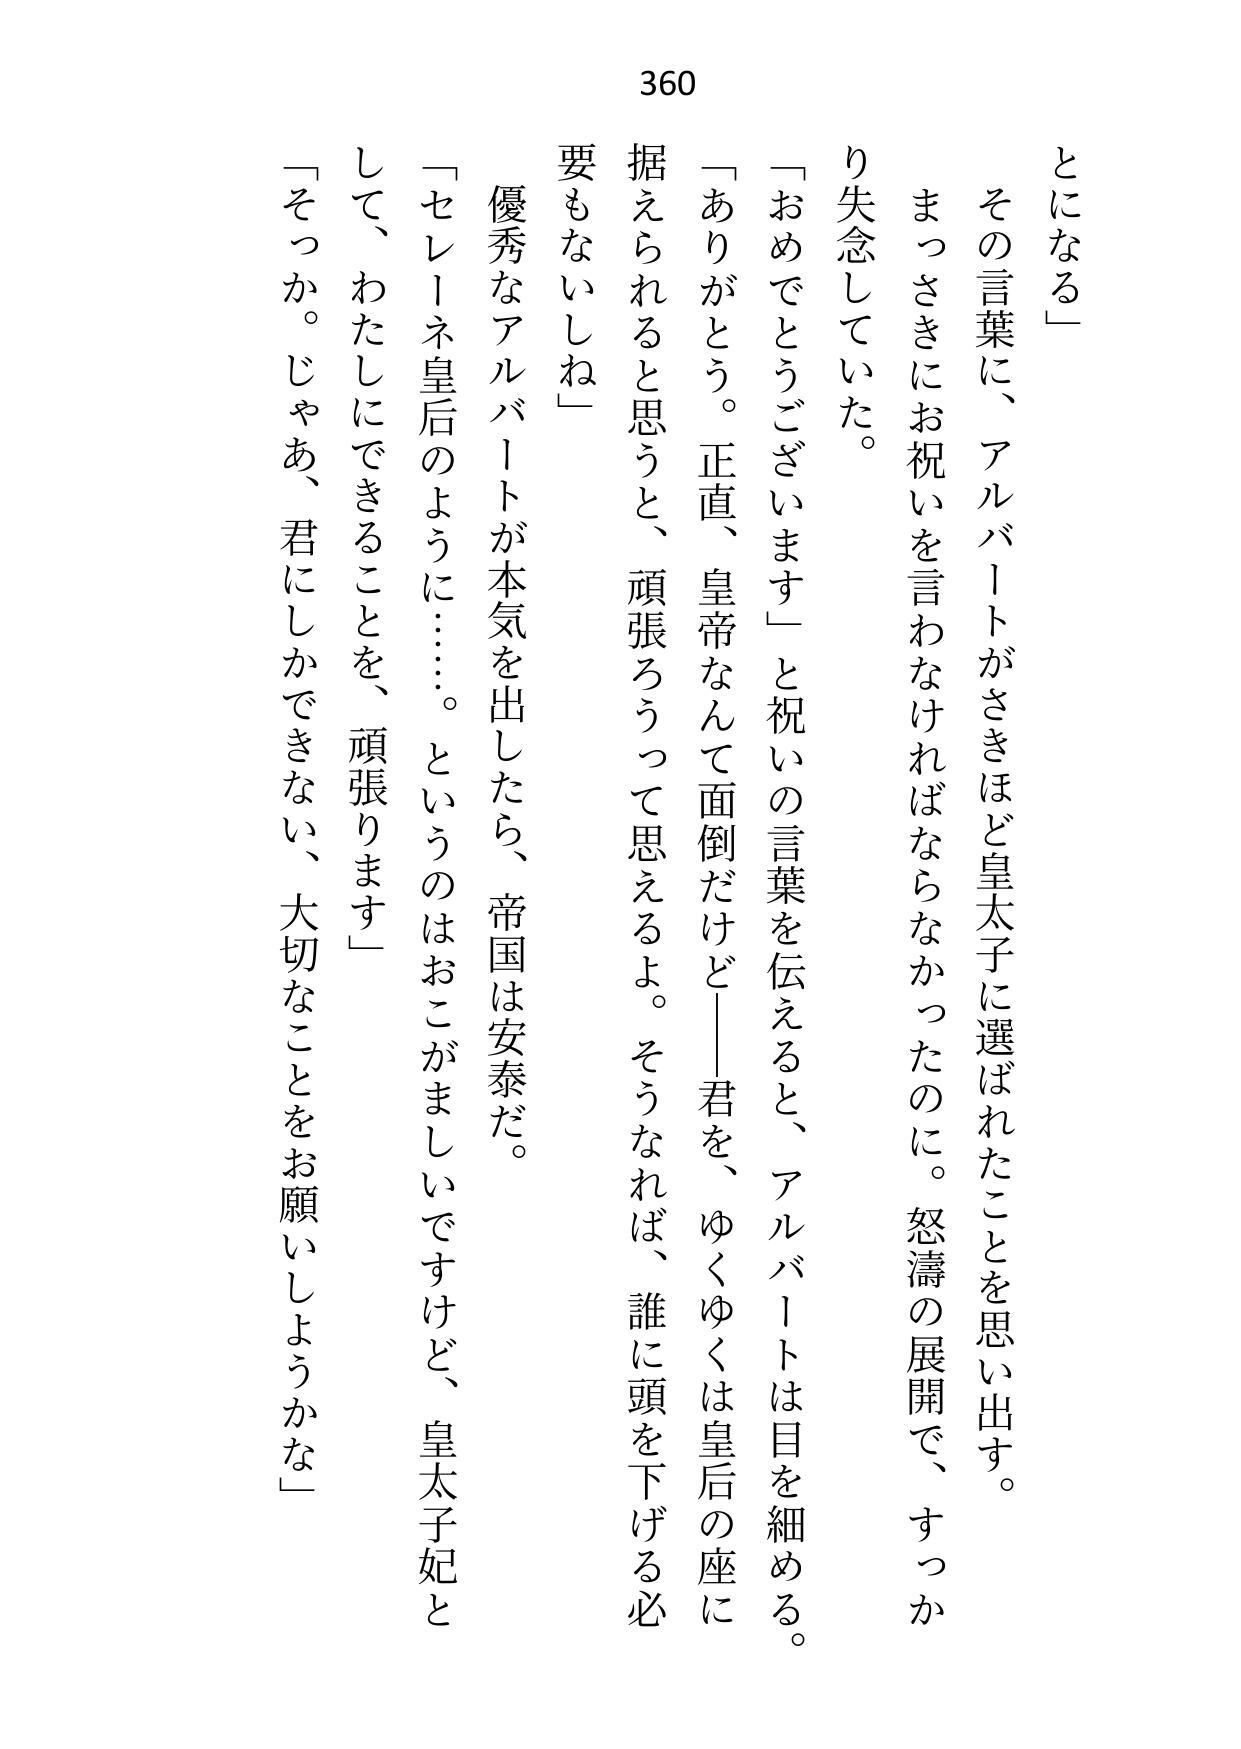 360
とになる」
　その言葉に、アルバートがさきほど皇太子に選ばれたことを思い出す。
　まっさきにお祝いを言わなければならなかったのに。怒濤の展開で、すっか
り失念していた。
「おめでとうございます」と祝いの言葉を伝えると、アルバートは目を細める。
「ありがとう。正直、皇帝なんて面倒だけど――君を、ゆくゆくは皇后の座に
据えられると思うと、頑張ろうって思えるよ。そうなれば、誰に頭を下げる必
要もないしね」
　優秀なアルバートが本気を出したら、帝国は安泰だ。
「セレーネ皇后のように……。というのはおこがましいですけど、皇太子妃と
して、わたしにできることを、頑張ります」
「そっか。じゃあ、君にしかできない、大切なことをお願いしようかな」